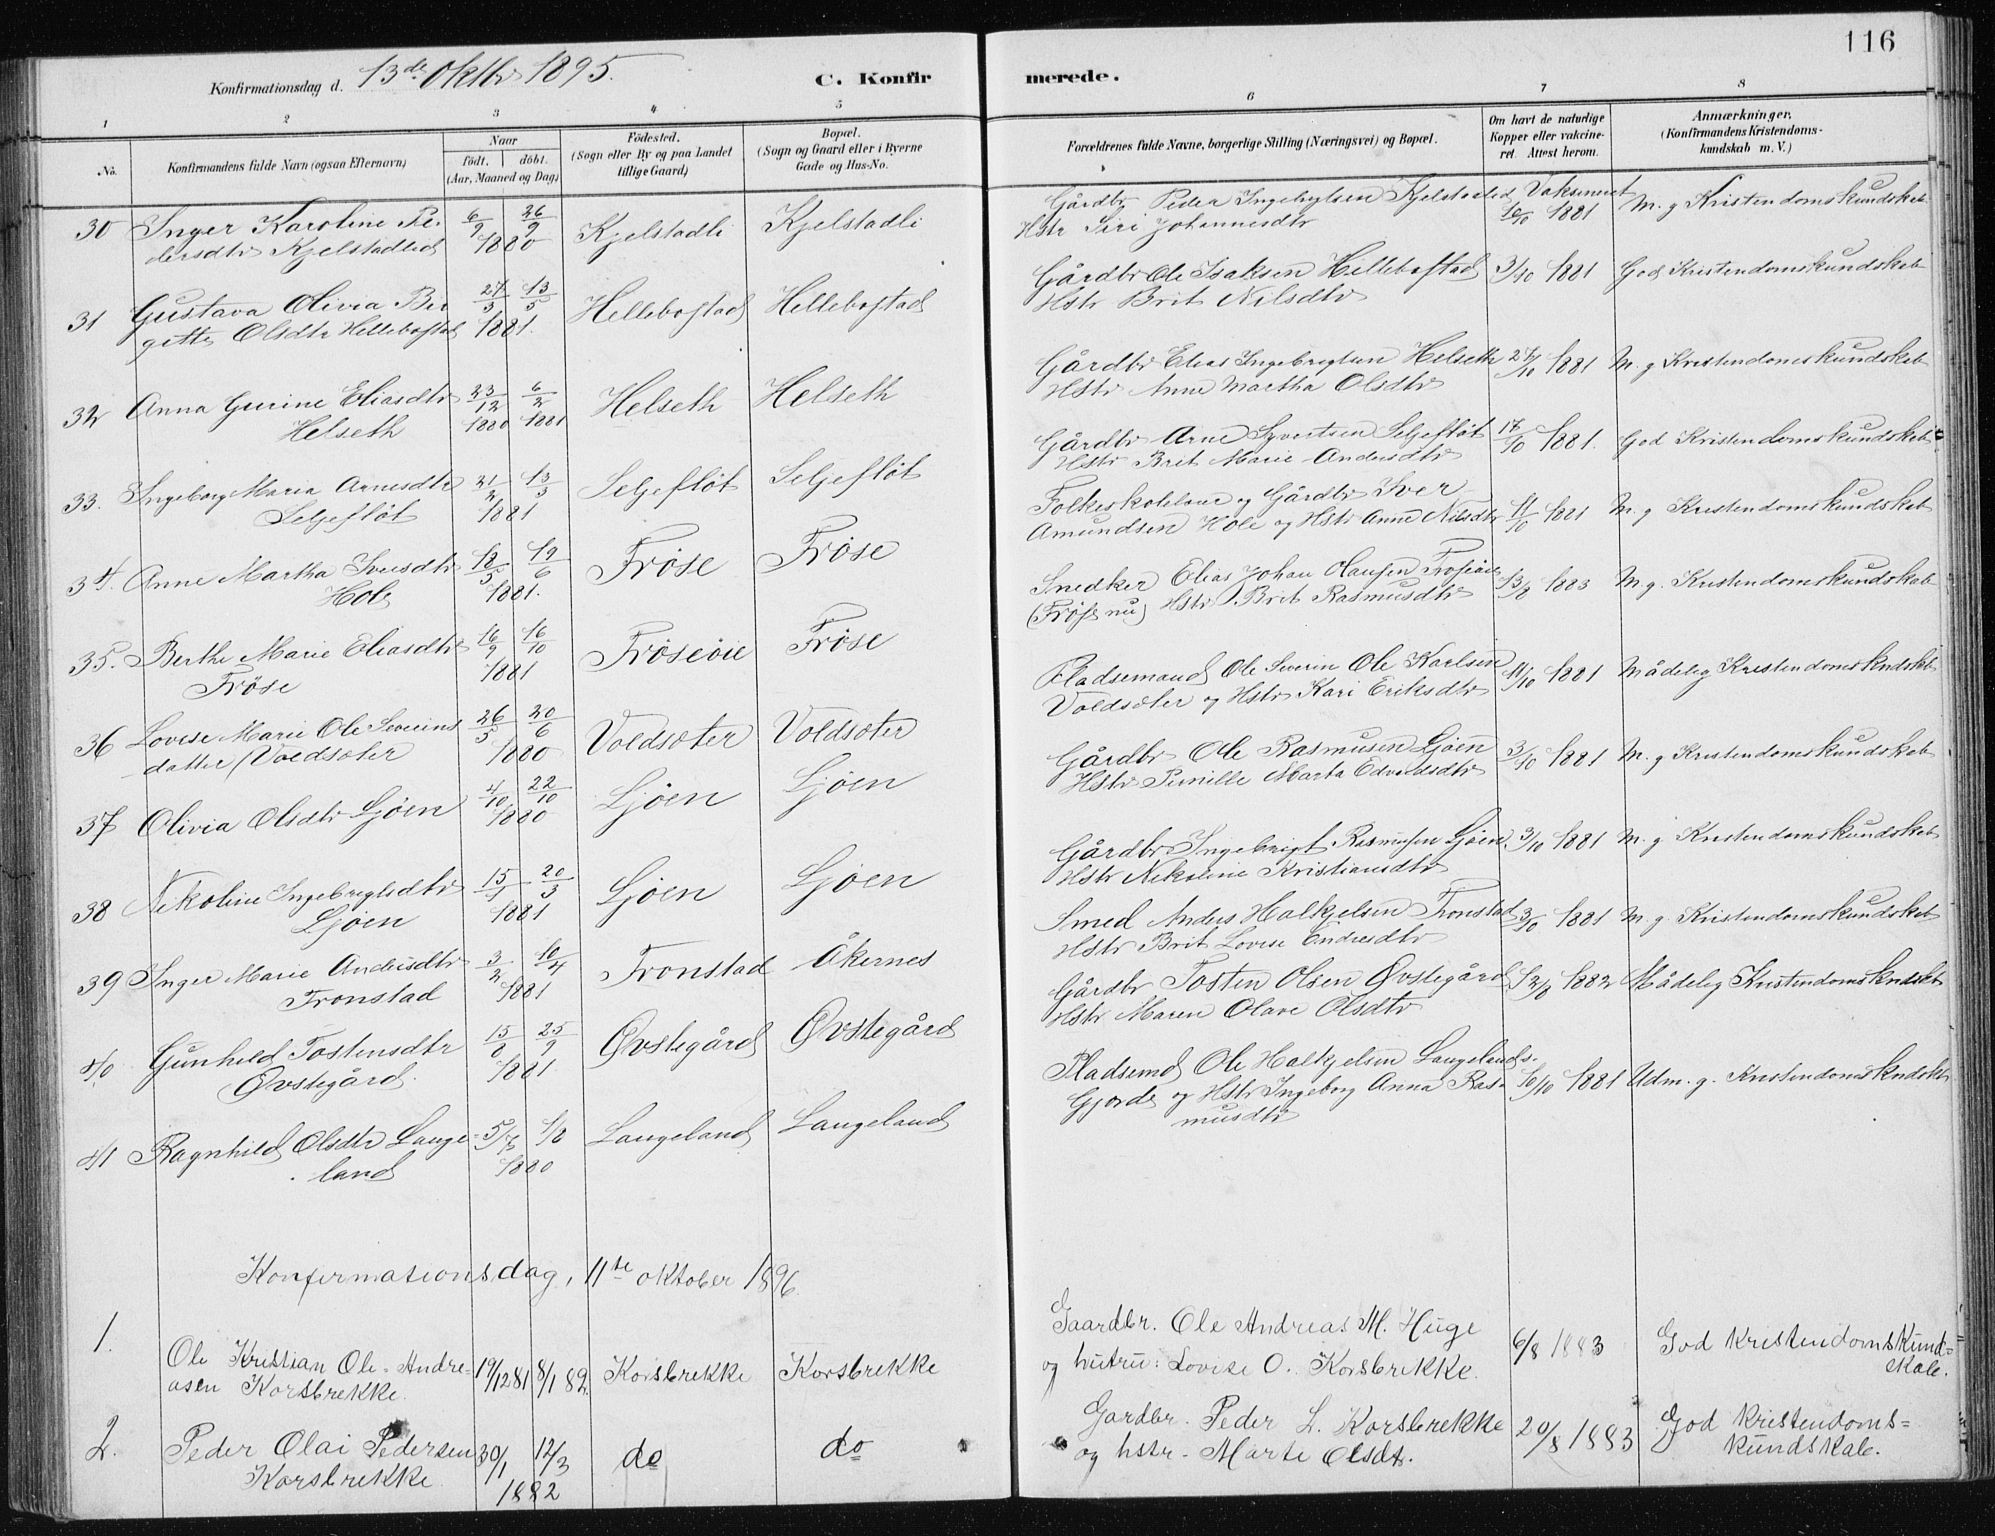 116
Konfirmationsdag d. 13de Oktbr 1895.
C. Konfirmerede.
1 2 3 4 5 6 7 8
No.
Konfirmandens fulde Navn (ogsaa Efternavn)
Naar
født. døbt.
(Aar, Maaned og Dag)
Fødested.
(Sogn eller By og paa Landet
tillige Gaard)
Bopæl.
(Sogn og Gaard eller i Byerne
Gade og Hus-No.
Forældrenes fulde Navne, borgerlige Stilling (Næringsvei) og Bopæl.
Om havt de naturlige
Kopper eller vakcine-
ret. Attest herom.
Anmærkninger.
(Konfirmandens Kristendoms-
kundskab m. V.)
30 Inger Karoline Pe- 6/9 26/9 Kjelstadli Kjelstadli Gårdbr Peder Kjelstadlid Vaksineret M. g Kristendomskundskab
dersdtr Kjelstadlid 1880 Hstr Siri Johannesdtr 10/10 1881
31 Gustava Olivia Bir 27/3 13/5 Hellebostad Hellebostad Gårdbr Ole Isaksen Hellebostad 3/10 1881 God Kristendomskundskab
gitte Olsdtr Hellebostad 1881. Hstr Brit Nilsdtr
32 Anna Gurine Eliasdtr 23/12 6/2 Helseth Helseth Gårdbr Elias Ingebrigtsen Helseth 27/10 1881 M. g Kristendomskundskab
Helseth 1880 1881 Hstr Anne Martha Olsdtr
33. Ingeborg Maria Arnesdtr 21/2 13/3 Seljefløt Seljefløt Gårdbr Arne Syvertsen Seljefløt 17/10 1881. God Kristendomskundskab
Seljefløt 1881 Hstr Brit Marie Andersdtr
34. Anne Martha Iversdtr 18/5 19/6 Frøse Frøse Folkeskolelærer og Gårdbr Iver 11/10 1881 M. g Kristendomskundskab
Hole 1881. Amundsen Hole og Hstr Anne Nilsdtr
35. Berthe Marie Eliasdtr 16/9 16/10 Frøseøie Frøse Snedker Elias Johan Olausen Frøseøie 13/8 1883 M. g. Kristendomskundskab
Frøse 1881 (Frøse nu) Hstr Brit Rasmusdtr
36 Lovise Marie Ole Severins 26/5 20/6 Voldsæter Voldsæter Pladsemand Ole Severin Ole Karlsen 11/10 1881 Mådelig Kristendomskndskb
datter Voldsæter 1880 Voldsæter og Hstr Kari Eriksdtr
37 Olivia Olsdtr Ljøen 4/10 22/10 Ljøen Ljøen Gårdbr Ole Rasmusen Ljøen 3/10 1881 M. g Kristendomskundskab
1880 Hstr Pernille Marta Edvardsdtr
38 Nikoline Ingebrigtsdtr 15/1 20/3 Ljøen Ljøen Gårdbr Ingebrigt Rasmusen Ljøen. 3/10 1881 M. g Kristendomskundskab
Ljøen 1881 Hstr Nikoline Kristiansdtr
39 Inger Marie Andersdtr 3/2 10/4 Tronstad Åkernes Smed Anders Halkjelsen Tronstad 3/10 1881 M. g. Kristendomskundskab
Tronstad 1881 Hstr Brit Lovise Endresdtr
40 Gunhild Tostensdtr 15/8 25/9 Øvstegård Øvstegård Gårdbr Tosten Olsen Øvstegård 12/8 1882 Mådelig Kristendomskndskb
Øvstegård. 1881 Hstr Maren Olave Olsdtr
41 Ragnhild Olsdtr Lange- 5/7 1/8 Langeland Langeland Pladsemd Ole Halkjelsen Langelands- 10/10 1881 Udm. g. Kristendomskndskb
land 1880 Gjærde og Hstr Ingeborg Anna Ras-
musdtr
Konfirmationsdag, 11te oktober 1896.
1. Ole Kristian Ole-Andre- 19/12 81 8/1 82. Korsbrekke Korsbrekke Gaardbr. Ole Andreas M. Huge 6/8 1883 God Kristendomskund-
asen Korsbrekke. og hustru: Lovise O. Korsbrekke. skab.
2. Peder Olai Pedersen 30/1 12/3 do do Gardbr. Peder L. Korsbrekke 20/8 1883 God Kristendoms-
Korsbrekke 1882 og hstr. Marte Olsdt. kundskab.